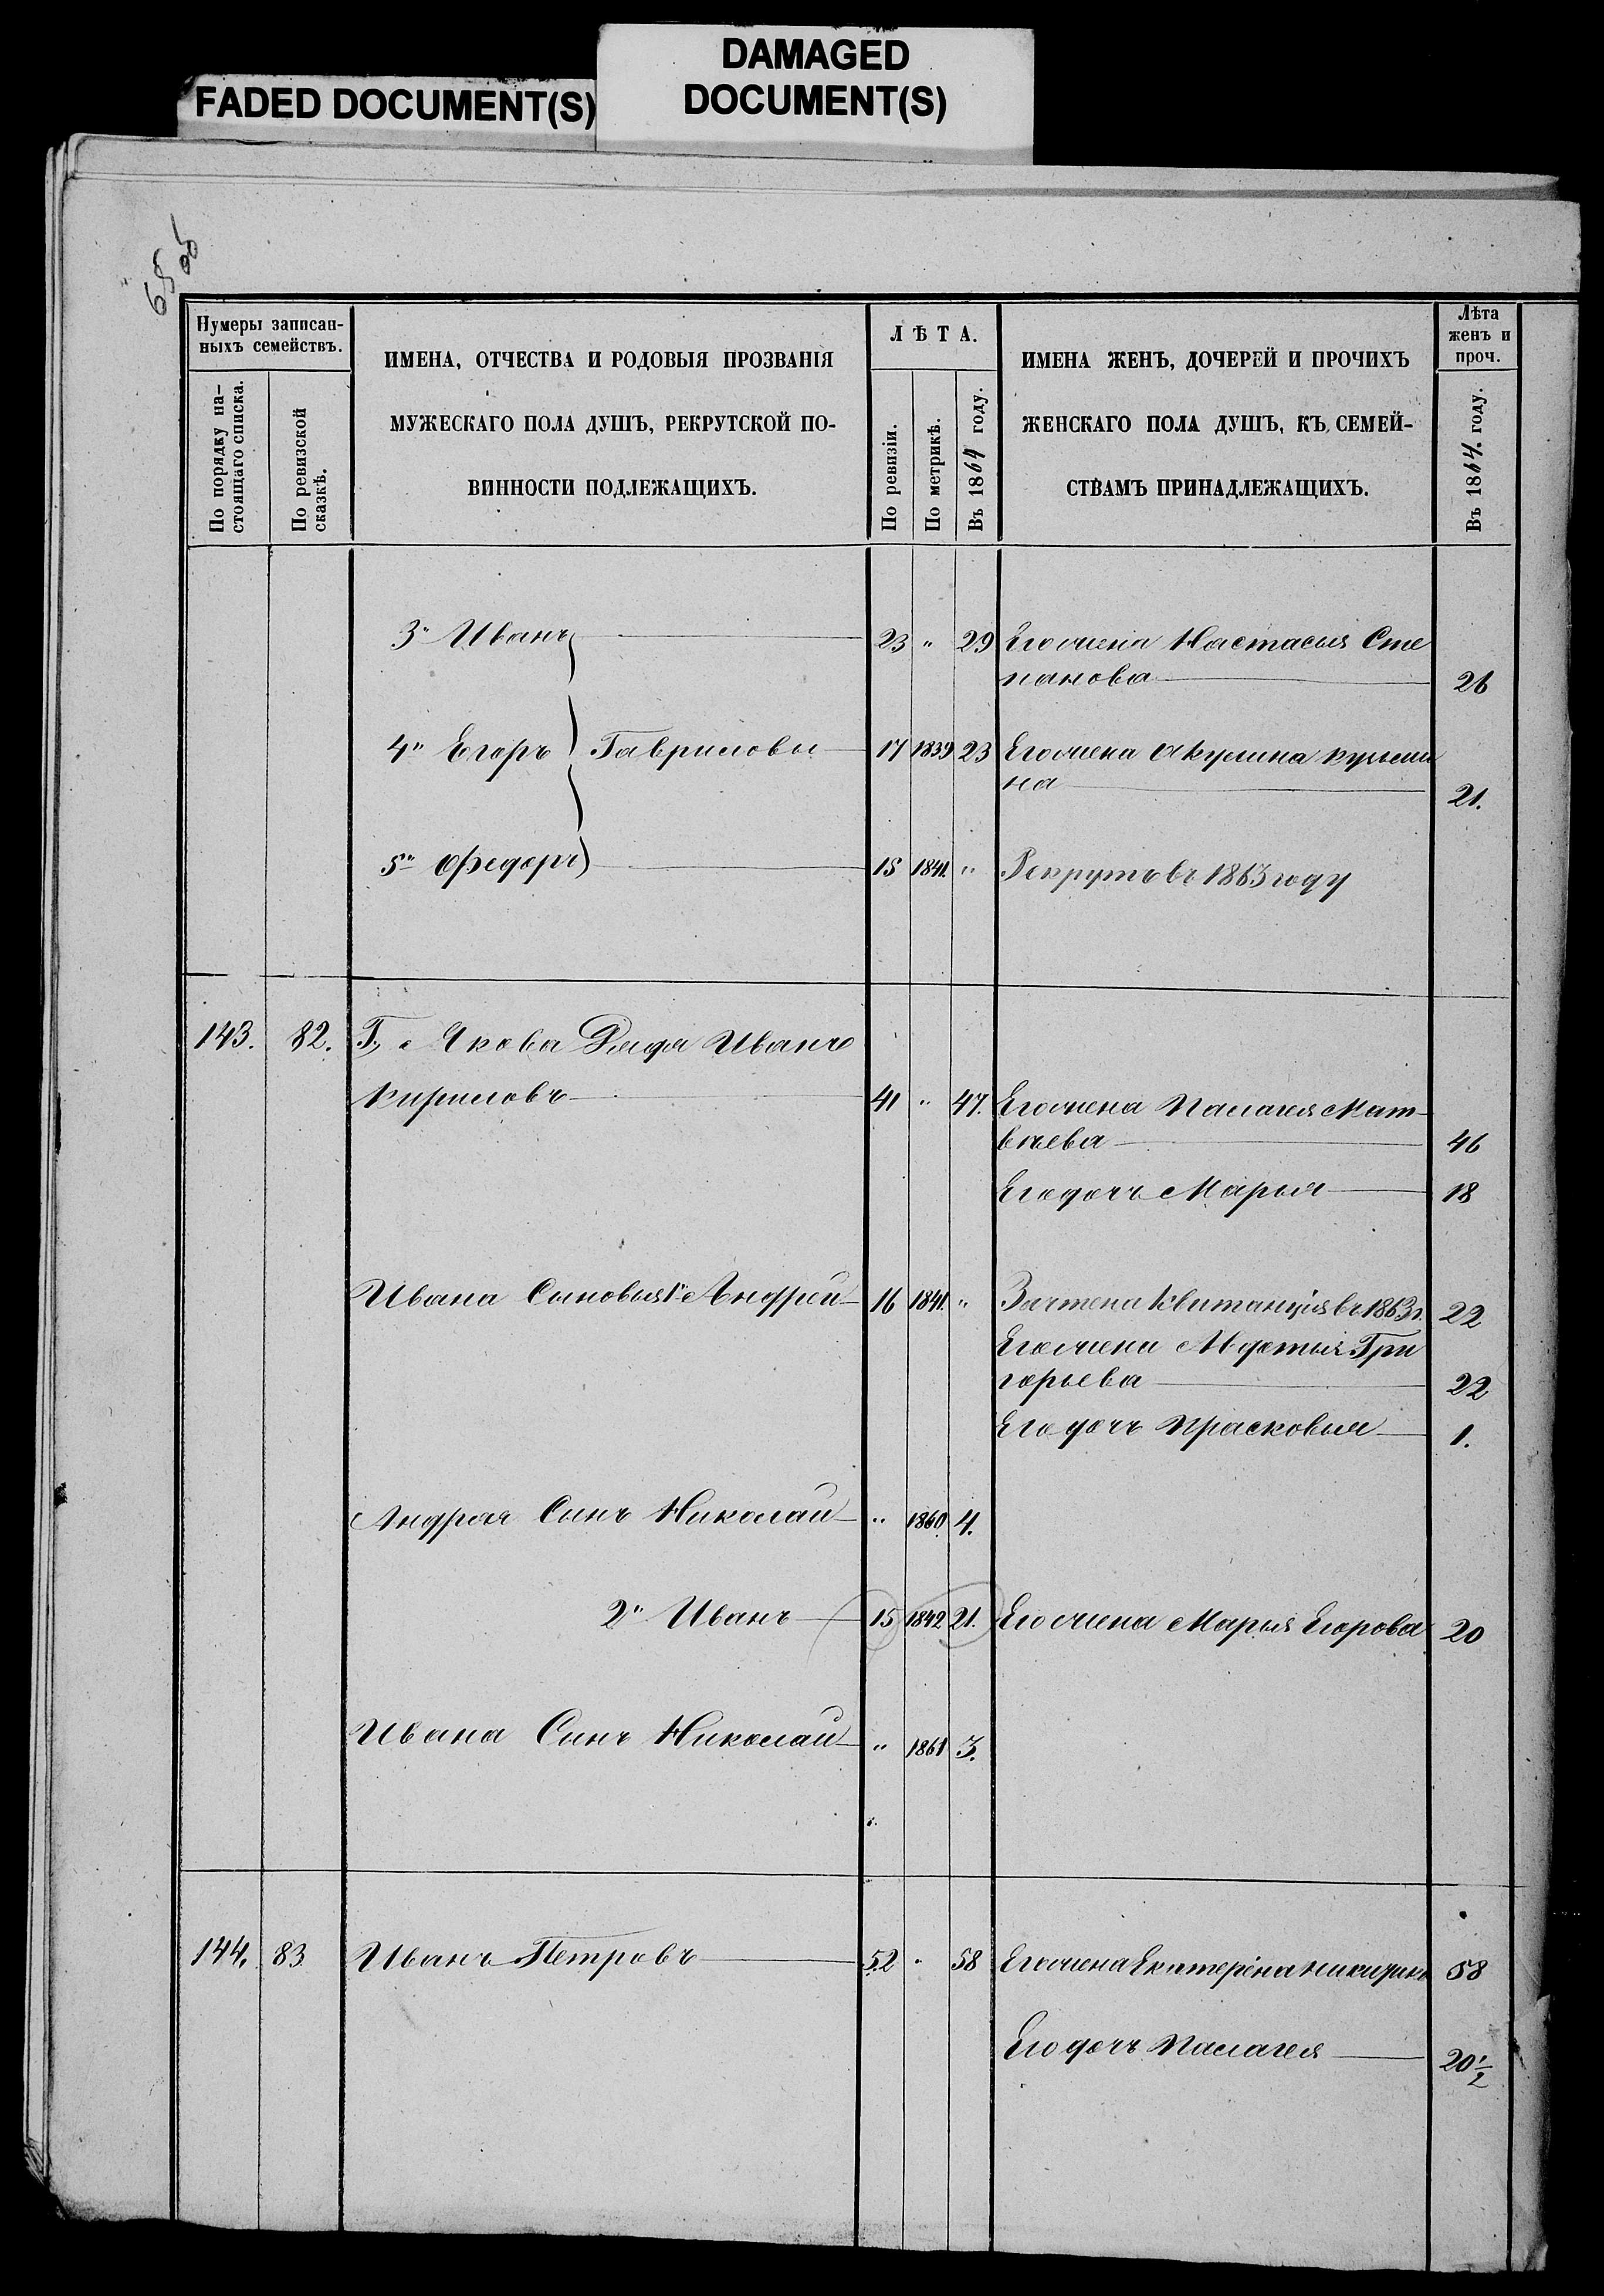 DAMAGED
DOCUMENT(S)
FADED DOCUMENT(S)
65 об
Нумеры записан-
ныхъ семействъ.
По порядку на-
стоящаго списка.
По ревизской
сказкѣ.
ИМЕНА, ОТЧЕСТВА И РОДОВЫЯ ПРОЗВАНІЯ
МУЖЕСКАГО ПОЛА ДУШЪ, РЕКРУТСКОЙ ПО-
ВИННОСТИ ПОДЛЕЖАЩИХЪ.
ЛѢТА.
По ревизіи.
По метрикѣ.
Въ 1864 году.
ИМЕНА ЖЕНЪ, ДОЧЕРЕЙ И ПРОЧИХЪ
ЖЕНСКАГО ПОЛА ДУШЪ, КЪ СЕМЕЙ-
СТВАМЪ ПРИНАДЛЕЖАЩИХЪ.
Лѣта
женъ и
проч.
Въ 1864. году.
3" Иванъ 23 " 29 Его жена Настасья Сте
панова 26
4" Егоръ Гавриловы 17 1839 23 Его жена Акулина
на 21.
5" Федоръ 15 1841. " Рекрутъ въ 1863 году
143. 82. Якова Дядя Иванъ
Кириловъ 41 " 47. Его жена Палагея Мат-
вѣева 46
Его дочь Марья 18
Ивана Сыновья 1" Андрей 16 1841. " Зачтена Квитанція въ 1863 г. 22
Его жена Авдотья Гри
горьева 22
Его дочь Прасковья 1.
Андрея Сынъ Николай " 1860 4.
2" Иванъ 15 1842 21. Его жена Марья Егорова 20
Ивана Сынъ Николай " 1861 3.
144. 83 Иванъ Петровъ 52 " 58 Его жена Екатерина 58
Его дочь Палагея 20½